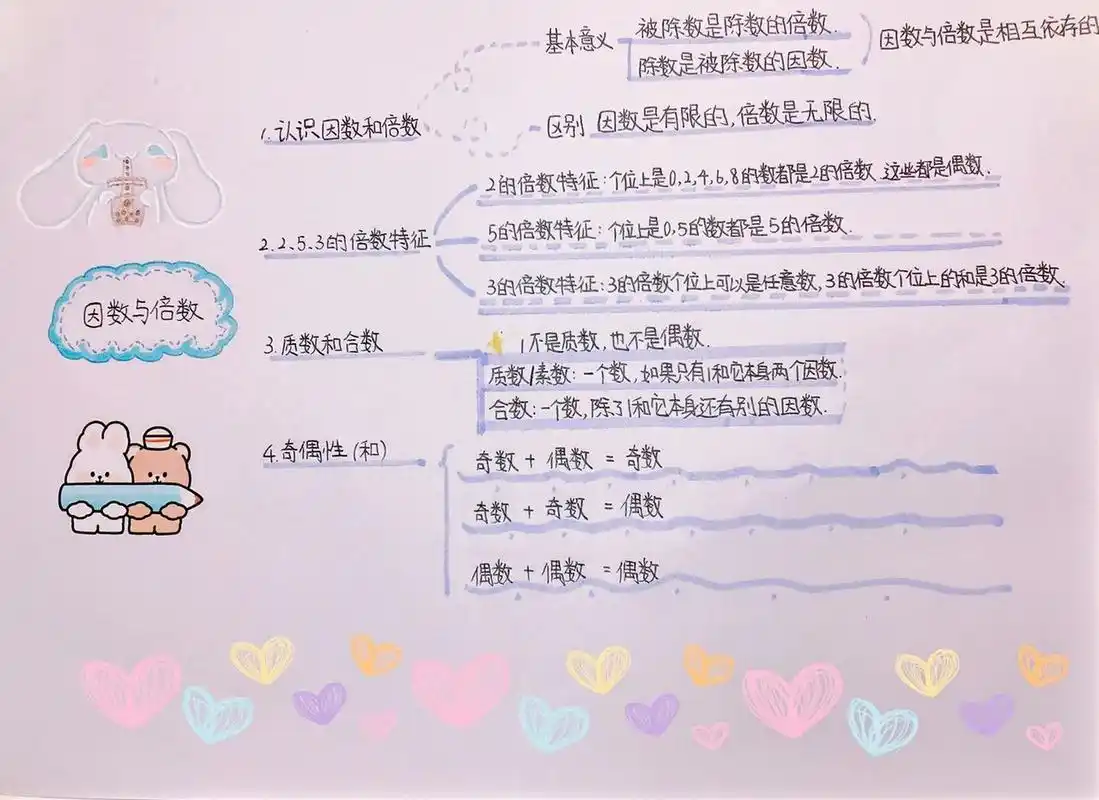 基本意义
被除数是除数的倍数.
除数是被除数的因数.
因数与倍数是相互依存的
1.认识因数和倍数
区别 因数是有限的,倍数是无限的.
2的倍数特征:个位上是0,2,4,6,8的数都是2的倍数 这些都是偶数.
2.2、5.3的倍数特征
5的倍数特征:个位上是0,5的数都是5的倍数.
3的倍数特征:3的倍数个位上可以是任意数,3的倍数个位上的和是3的倍数.
因数与倍数
3.质数和合数
1不是质数,也不是偶数.
质数/素数:一个数,如果只有1和它本身两个因数.
合数:一个数,除了1和它本身还有别的因数.
4.奇偶性(和)
奇数 + 偶数 = 奇数
奇数 + 奇数 = 偶数
偶数 + 偶数 = 偶数